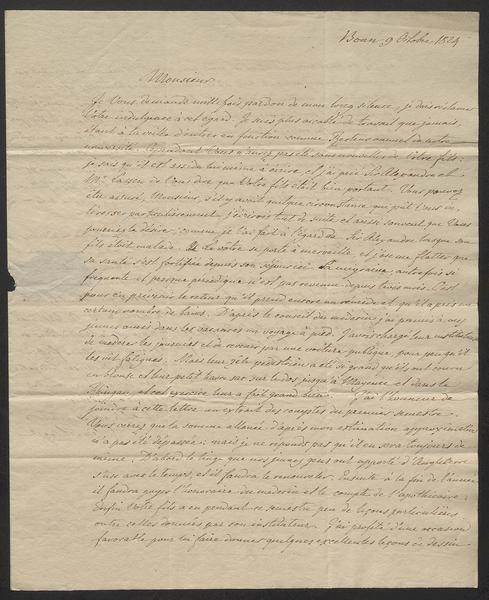 Bonn 9 Octobre 1824
Monsieur
Je Vous demande mille fois pardon de mon long silence, je dois réclamer
Votre indulgence à cet égard. Je suis plus accablé de travail que jamais,
étant à la veille d'entrer en fonction comme Recteur annuel de notre
université. Cependant Vous n'aurez pas été sans nouvelles de Votre fils:
je sais qu'il est assidu lui même à écrire, et j'ai prié Sir Alexandre et
Mr. Lassen de Vous dire que Votre fils était bien portant. Vous pouvez
être assuré, Monsieur, s'il y avait quelque circonstance qui pût Vous in-
téresser particulièrement j'écrirois tout de suite et aussi souvent que Vous
pourriez le désirer: comme je l'ai fait à l'égard de Sir Alexandre lorsque son
fils étoit malade. Le votre se porte à merveille et j'ose me flatter que
sa santé s'est fortifiée depuis son séjour ici. La migraine autrefois si
fréquente et presque périodique n'est pas revenue depuis trois mois. C'est
pour en prévenir le retour qu'il prend encore un remède et qu'il a pris un
certain nombre de bains. D'après le conseil du médecin j'ai permis à nos
jeunes amis dans les vacances un voyage à pied. J'avois chargé leur instituteur
de modérer les journées et de revenir par une voiture publique pour peu qu'il
les vît fatigués. Mais leur zèle pédestre a été si grand qu'ils ont couru
en blouse et leur petit havre sac sur le dos jusqu'à Mayence et dans le
Rhingau, et cet exercice leur a fait grand bien. J'ai l'honneur de
joindre à cette lettre un extrait des comptes du premier semestre.
Vous verrez que la somme allouée d'après mon estimation approximative
n'a pas été dépassée: mais je ne réponds pas qu'il en sera toujours de
même. D'abord le linge que nos jeunes gens ont apporté d'Angleterre
s'use avec le temps, et il faudra le renouveler. Ensuite à la fin de l'année
il faudra payer l'honoraire du médecin et le compte de l'apothicaire.
Enfin Votre fils a eu pendant ce semestre peu de leçons particulières
outre celles données par son instituteur. J'ai profité d'une occasion
favorable pour lui faire donner quelques excellentes leçons de dessin